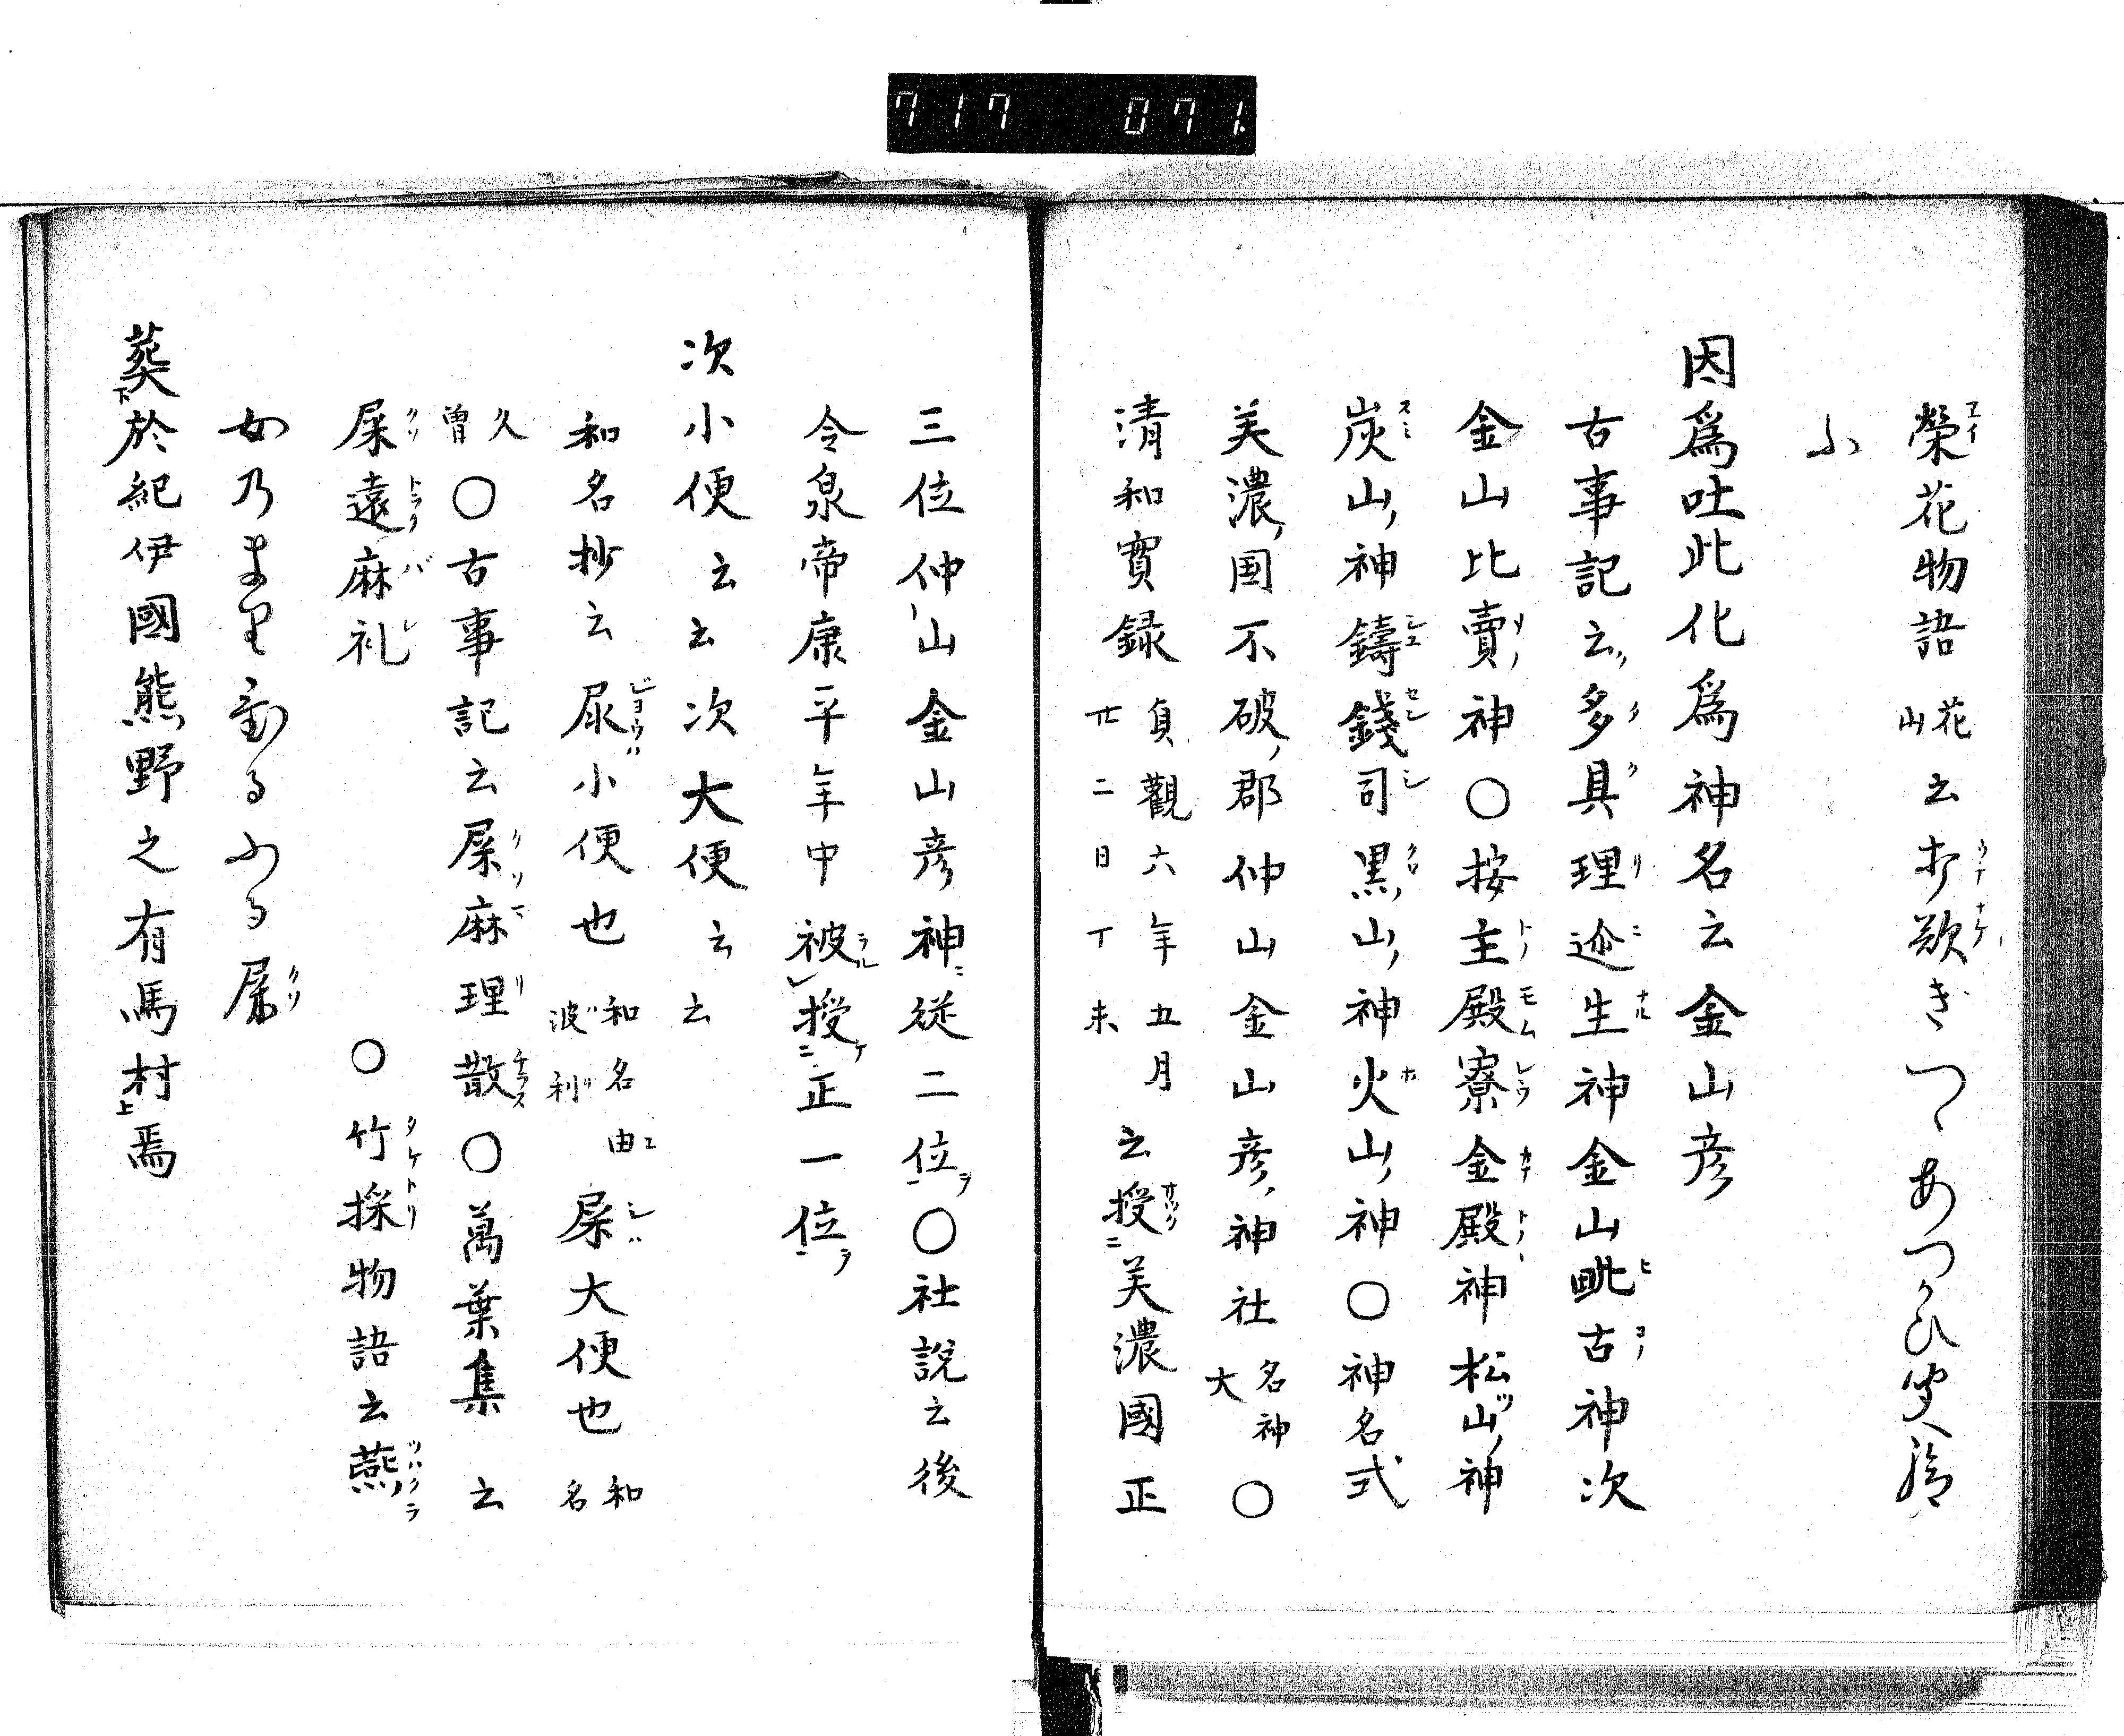 717 071.
榮花物語 花山 云打歎きつゝあつかひ聞給
ふ
因爲吐此化爲神名云金山彦
古事記云多具理迩生神金山毗古神次
金山比賣神〇按主殿寮金殿神松山神
炭山神鑄錢司黒山神火山神〇神名式
美濃国不破郡仲山金山彦神社 名神大 〇
清和實録 貞觀六年五月廿二日丁未 云授美濃國正
三位仲山金山彦神従二位〇社説云後
令泉帝康平年中被授正一位
次小便云云次大便云云
和名抄云尿小便也 和名由波利 屎大便也 和名
久曽 〇古事記云屎麻理散〇萬葉集云
屎遠麻礼 〇竹採物語云燕
女乃まり
葬於紀伊國熊野之有馬村焉